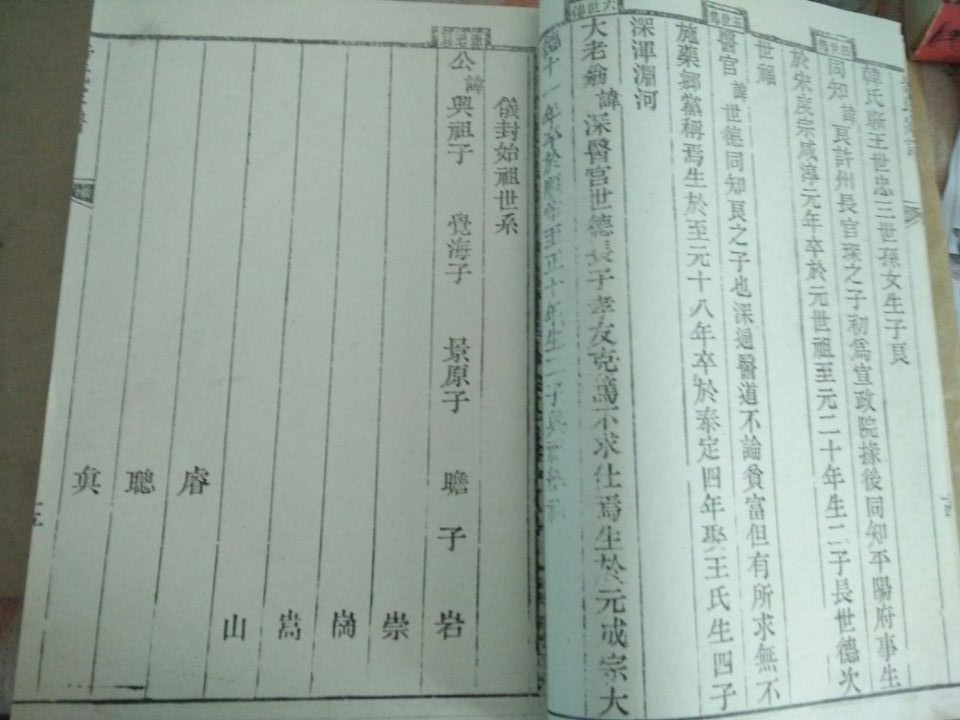 韓氏蘄王世忠三世孫女生子頁
四世傳
同知諱頁許州長官琛之子初為宣政院掾後同知平陽府事生
於宋度宗咸淳元年卒於元世祖至元二十年生二子長世德次
世福
五世傳
醫官諱世德同知頁之子也深通醫道不論貧富但有所求無不
施藥鄉黨稱焉生於至元十八年卒於泰定四年娶王氏生四子
深渾淵河
六世傳
大老翁諱深醫官世德長子孝友克篤不求仕焉生於元成宗大
德十一年卒於順帝至正十年生二子興
儀封始祖世系
公諱興祖子 覺海子 景原子 瞻子 岩
崇
崗
嵩
山
睿
聰
真